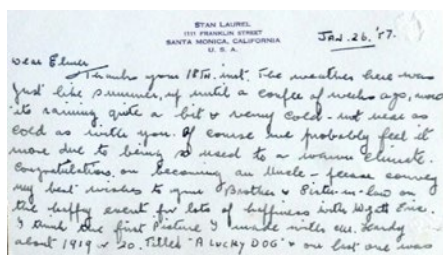 STAN LAUREL
1111 FRANKLIN STREET
SANTA MONICA, CALIFORNIA
U. S. A.
JAN. 26. '57.
Dear Elmer
Thanks yours 18TH. inst. The weather here was
just like summer, up until a couple of weeks ago, now
its raining quite a bit & very cold - not near as
cold as with you. Of course we probably feel it
more due to being so used to a warm climate.
Congratulations on becoming an Uncle - please convey
my best wishes to your Brother & Sister-in-law on
the happy event for lots of happiness with Wyatt Eric.
I think the first Picture I made with Mr. Hardy
about 1919 or 20. Titled "A LUCKY DOG" & our last one was